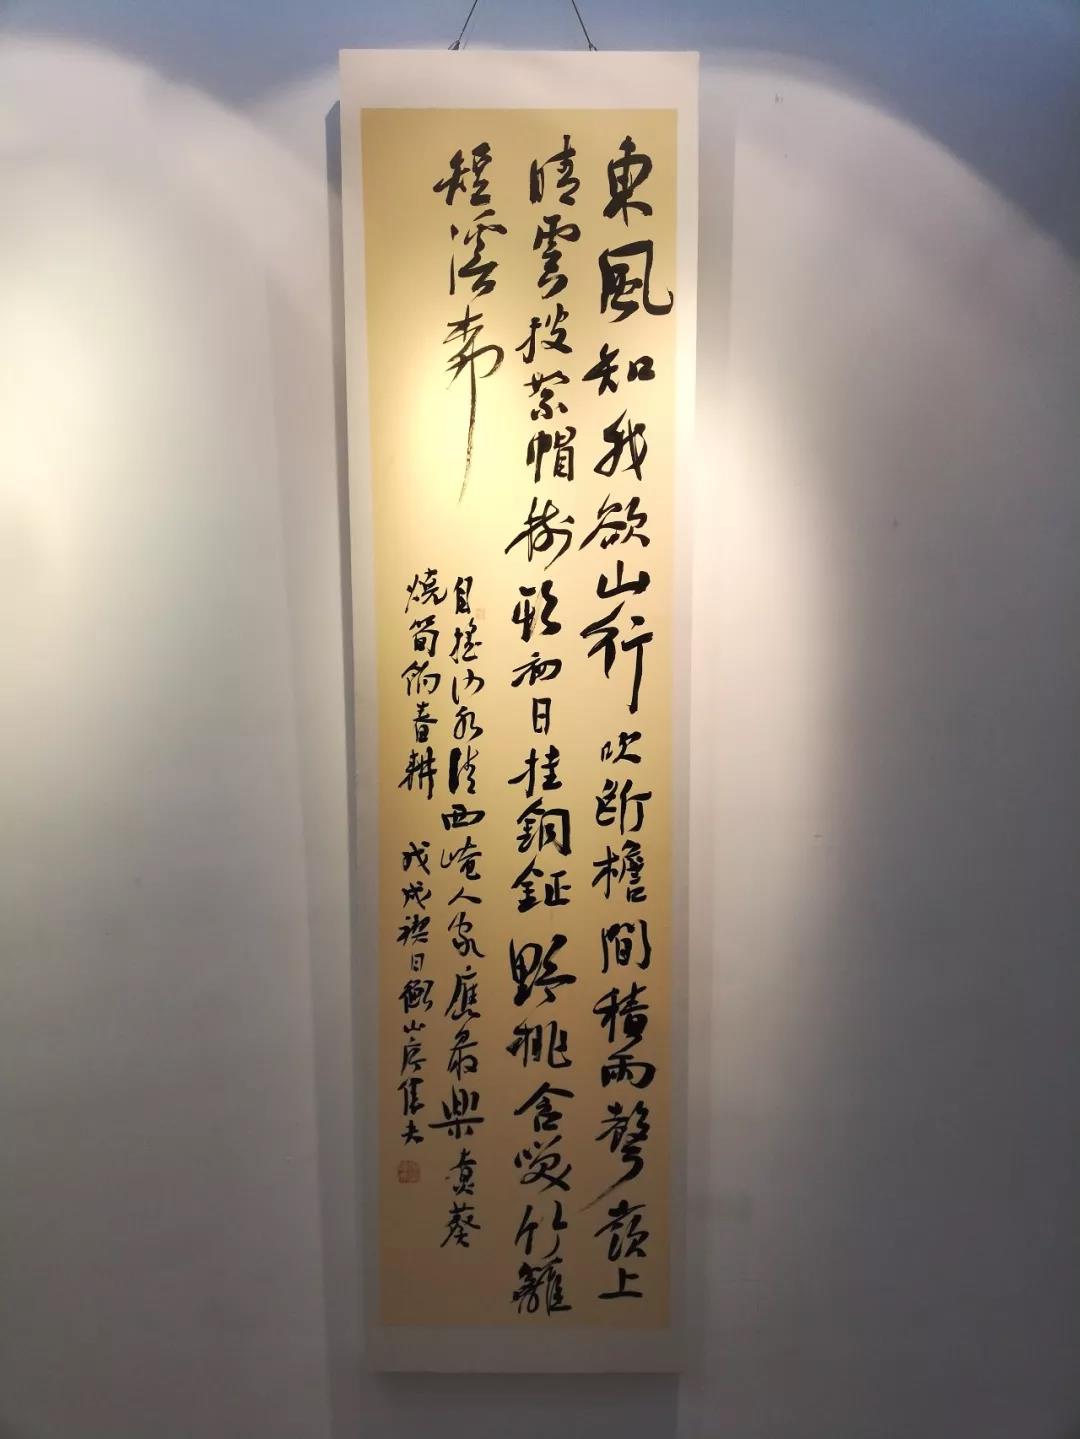 東風知我欲山行吹斷檐間積雨聲嶺上
晴雲披絮帽樹頭初日挂銅鉦野桃含咲竹籬
短溪柳
自搖沙水清西崦人家應最樂煮葵
燒筍餉春耕 戊戌禊日衡山